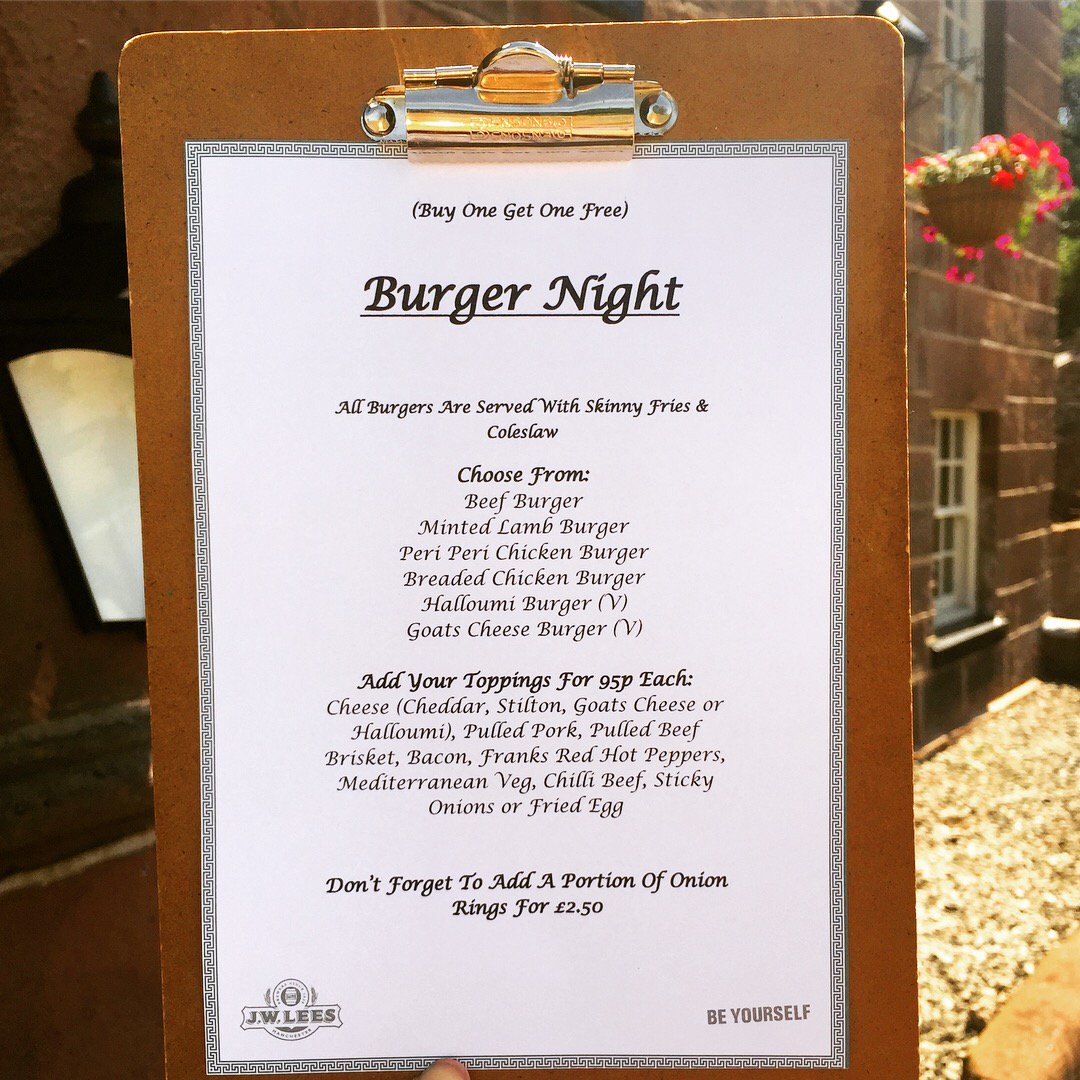 (Buy One Get One Free)
Burger Night
All Burgers Are Served With Skinny Fries &
Coleslaw
Choose From:
Beef Burger
Minted Lamb Burger
Peri Peri Chicken Burger
Breaded Chicken Burger
Halloumi Burger (V)
Goats Cheese Burger (V)
Add Your Toppings For 95p Each:
Cheese (Cheddar, Stilton, Goats Cheese or
Halloumi), Pulled Pork, Pulled Beef
Brisket, Bacon, Franks Red Hot Peppers,
Mediterranean Veg, Chilli Beef, Sticky
Onions or Fried Egg
Don't Forget To Add A Portion Of Onion
Rings For £2.50
J.W. LEES
MANCHESTER
BE YOURSELF